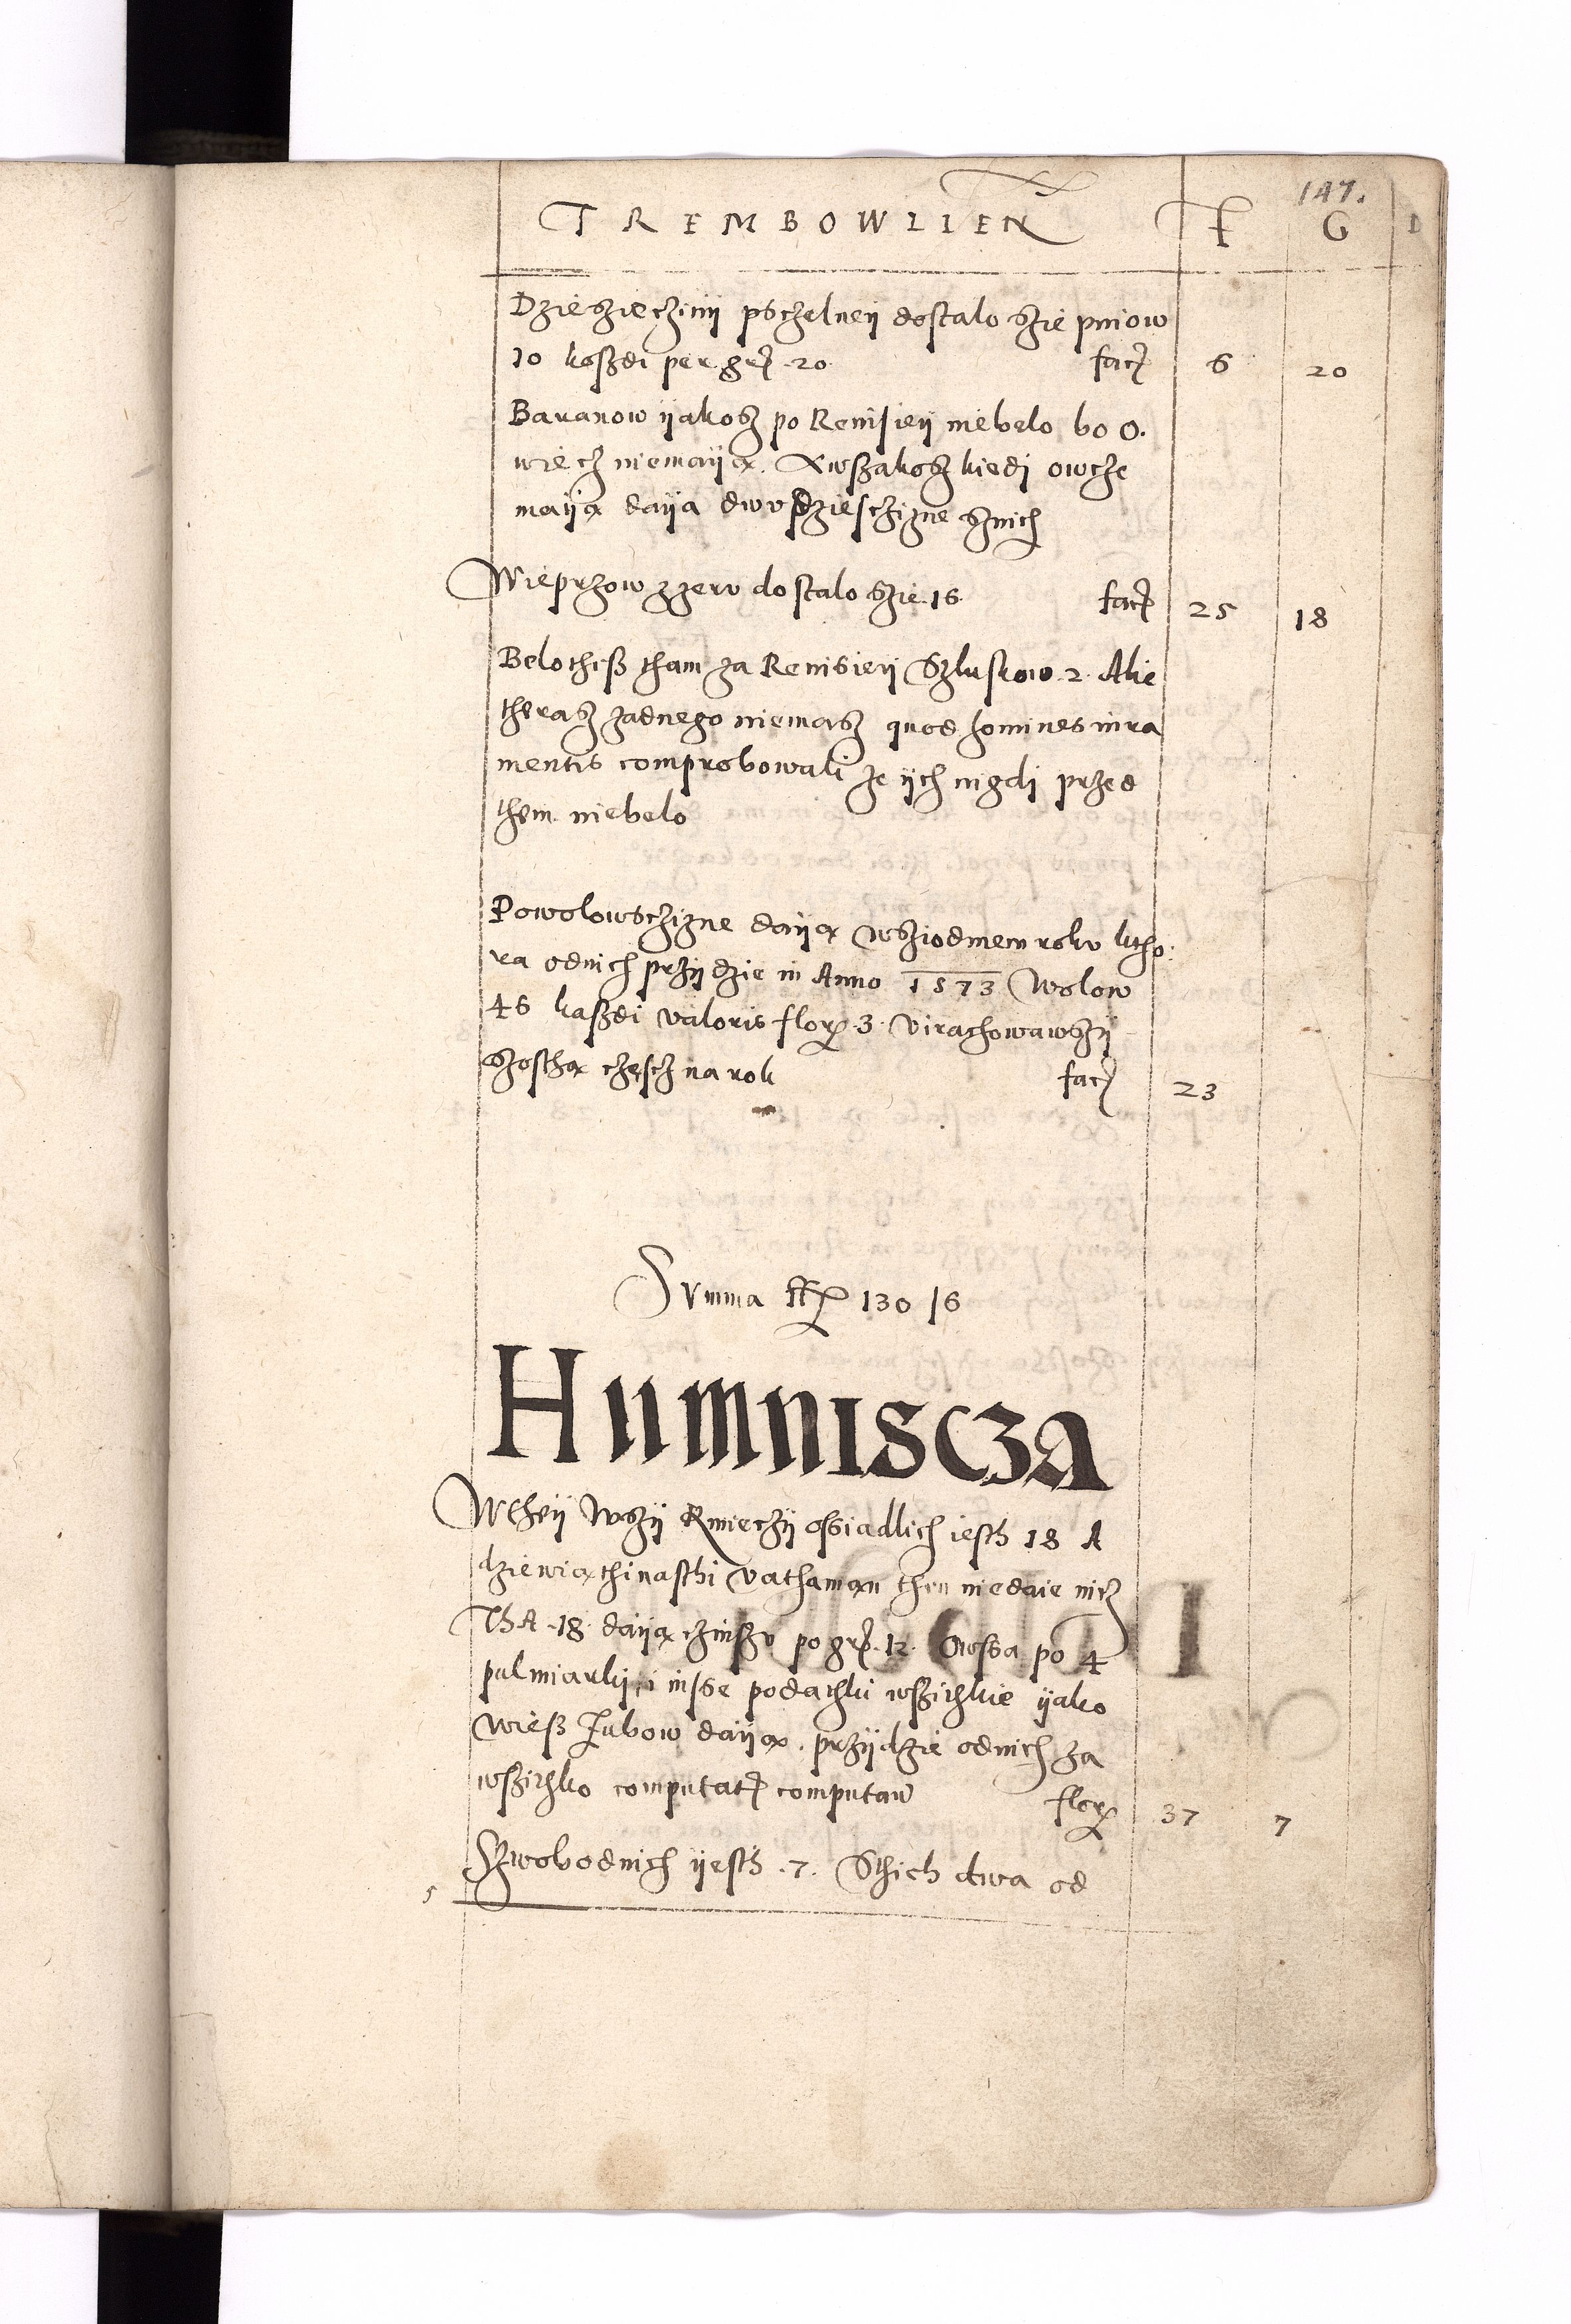 147.
TREMBOWLIEN F G D
Dzieszieczinÿ pschelneÿ dostalo szie pniow
10 koszdi per grj 20 facj 6 20
Baranow ÿakosz po Remisieÿ niebelo bo o.
wiecz niemaÿą. Awszakosz kiedi owcze
maÿą daÿa dwudzieschizne sznich
Wieprzow zzeru dostalo szie 16 facj 25 18
Belo thesz tham za Remisieÿ Szluskow 2. Alie
therasz zadnego niemasz quod homines iura
mentis comprobowali ze ÿch nigdi przed
them niebelo
Powolowschizne daÿą wsziodmem roku ktho
ra odnich przÿdzie in Anno 1573 Wolow
46 kaszdi valoris flor 3 virachowawszÿ
szostha czescz na rok facj 23
Summa fl 130 16
HUMNISCZA
W theÿ wszÿ Kmieczÿ osiadlich iesth 18 A
dziewiąthinasthi vathaman then niedaie nicz
Th A 18 daÿą czinszu po grj 12 Owsa po 4
pulmiarki i insze podathki wszithkie ÿako
wiesz Zubow daÿą. przÿdzie odnich za
wszithko computatj computan flor 37 7
Szwobodnich ÿesth 7. Sthich dwa od
5